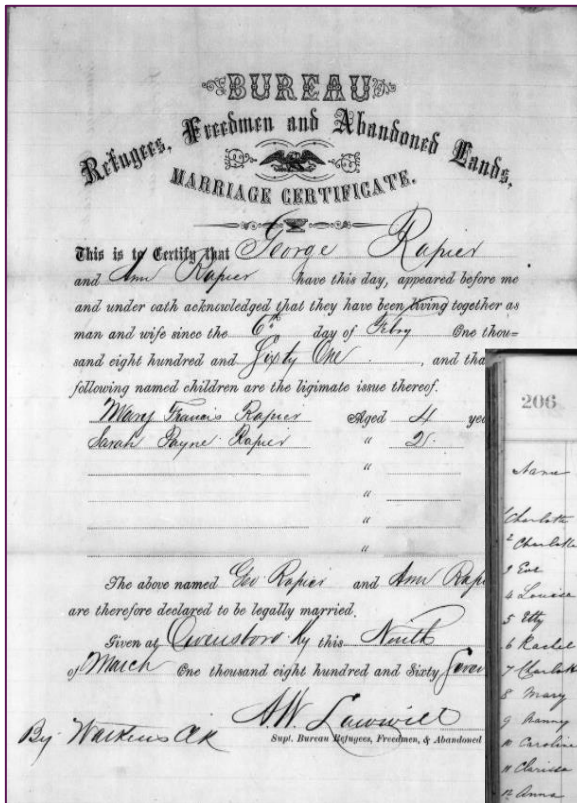 BUREAU
Refugees, Freedmen and Abandoned Lands,
MARRIAGE CERTIFICATE.
This is to Certify that George Rapier
and Ann Rapier have this day, appeared before me
and under oath acknowledged that they have been living together as
man and wife since the 6th day of Feby One thou=
sand eight hundred and Sixty One, and tha
following named children are the ligimate issue thereof.
Mary Francis Rapier Aged 4 ye
Sarah Payne Rapier " 2
"
"
"
"
The above named Geo Rapier and Ann Rap
are therefore declared to be legally married.
Given at Owensboro Ky this Ninth
of March One thousand eight hundred and Sixty Seven
By Watkins Clk
Supt. Bureau Refugees, Freedmen, & Abandoned
206
Name
1 Charlotte
2 Charlotte
3 Eve
4 Louisa
5 Etty
6 Rachel
7 Charlotte
8 Mary
9 Nanny
10 Caroline
11 Clarissa
12 Anna